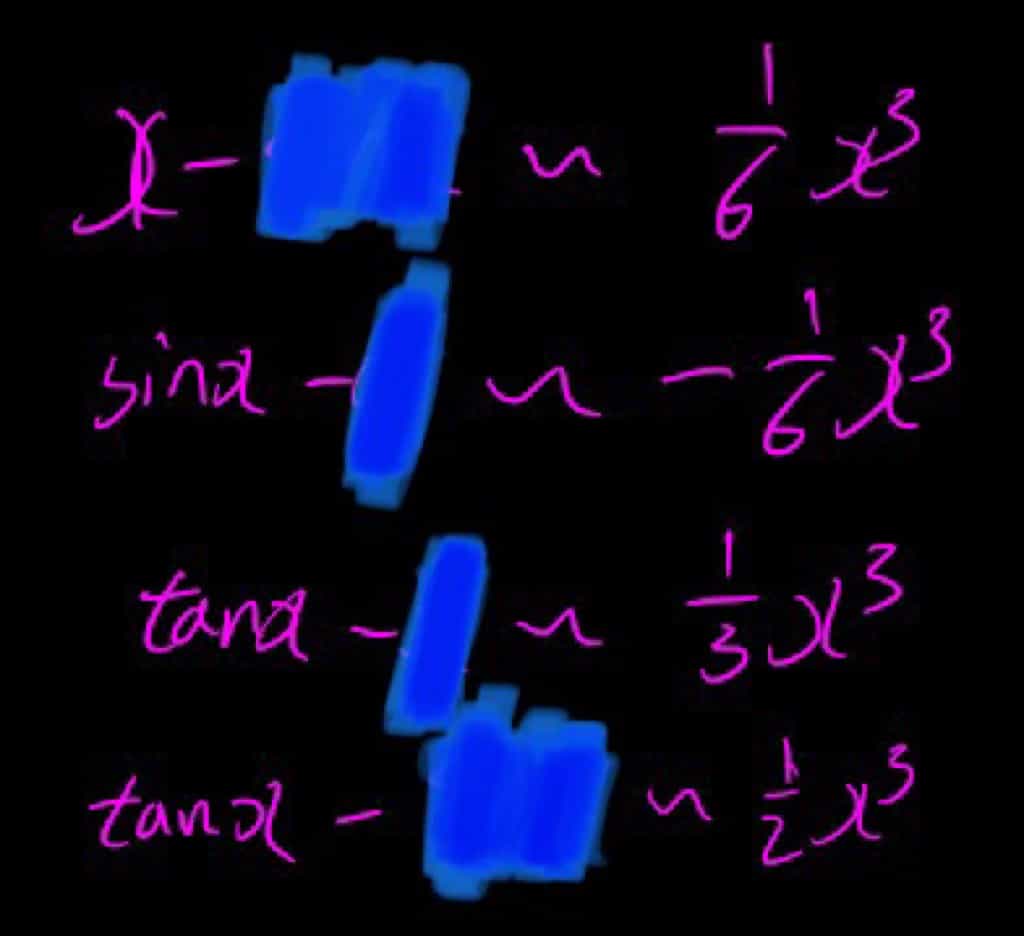 x - ~ 1/6 x³
sinx - ~ - 1/6 x³
tanx - ~ 1/3 x³
tanx - ~ 1/2 x³